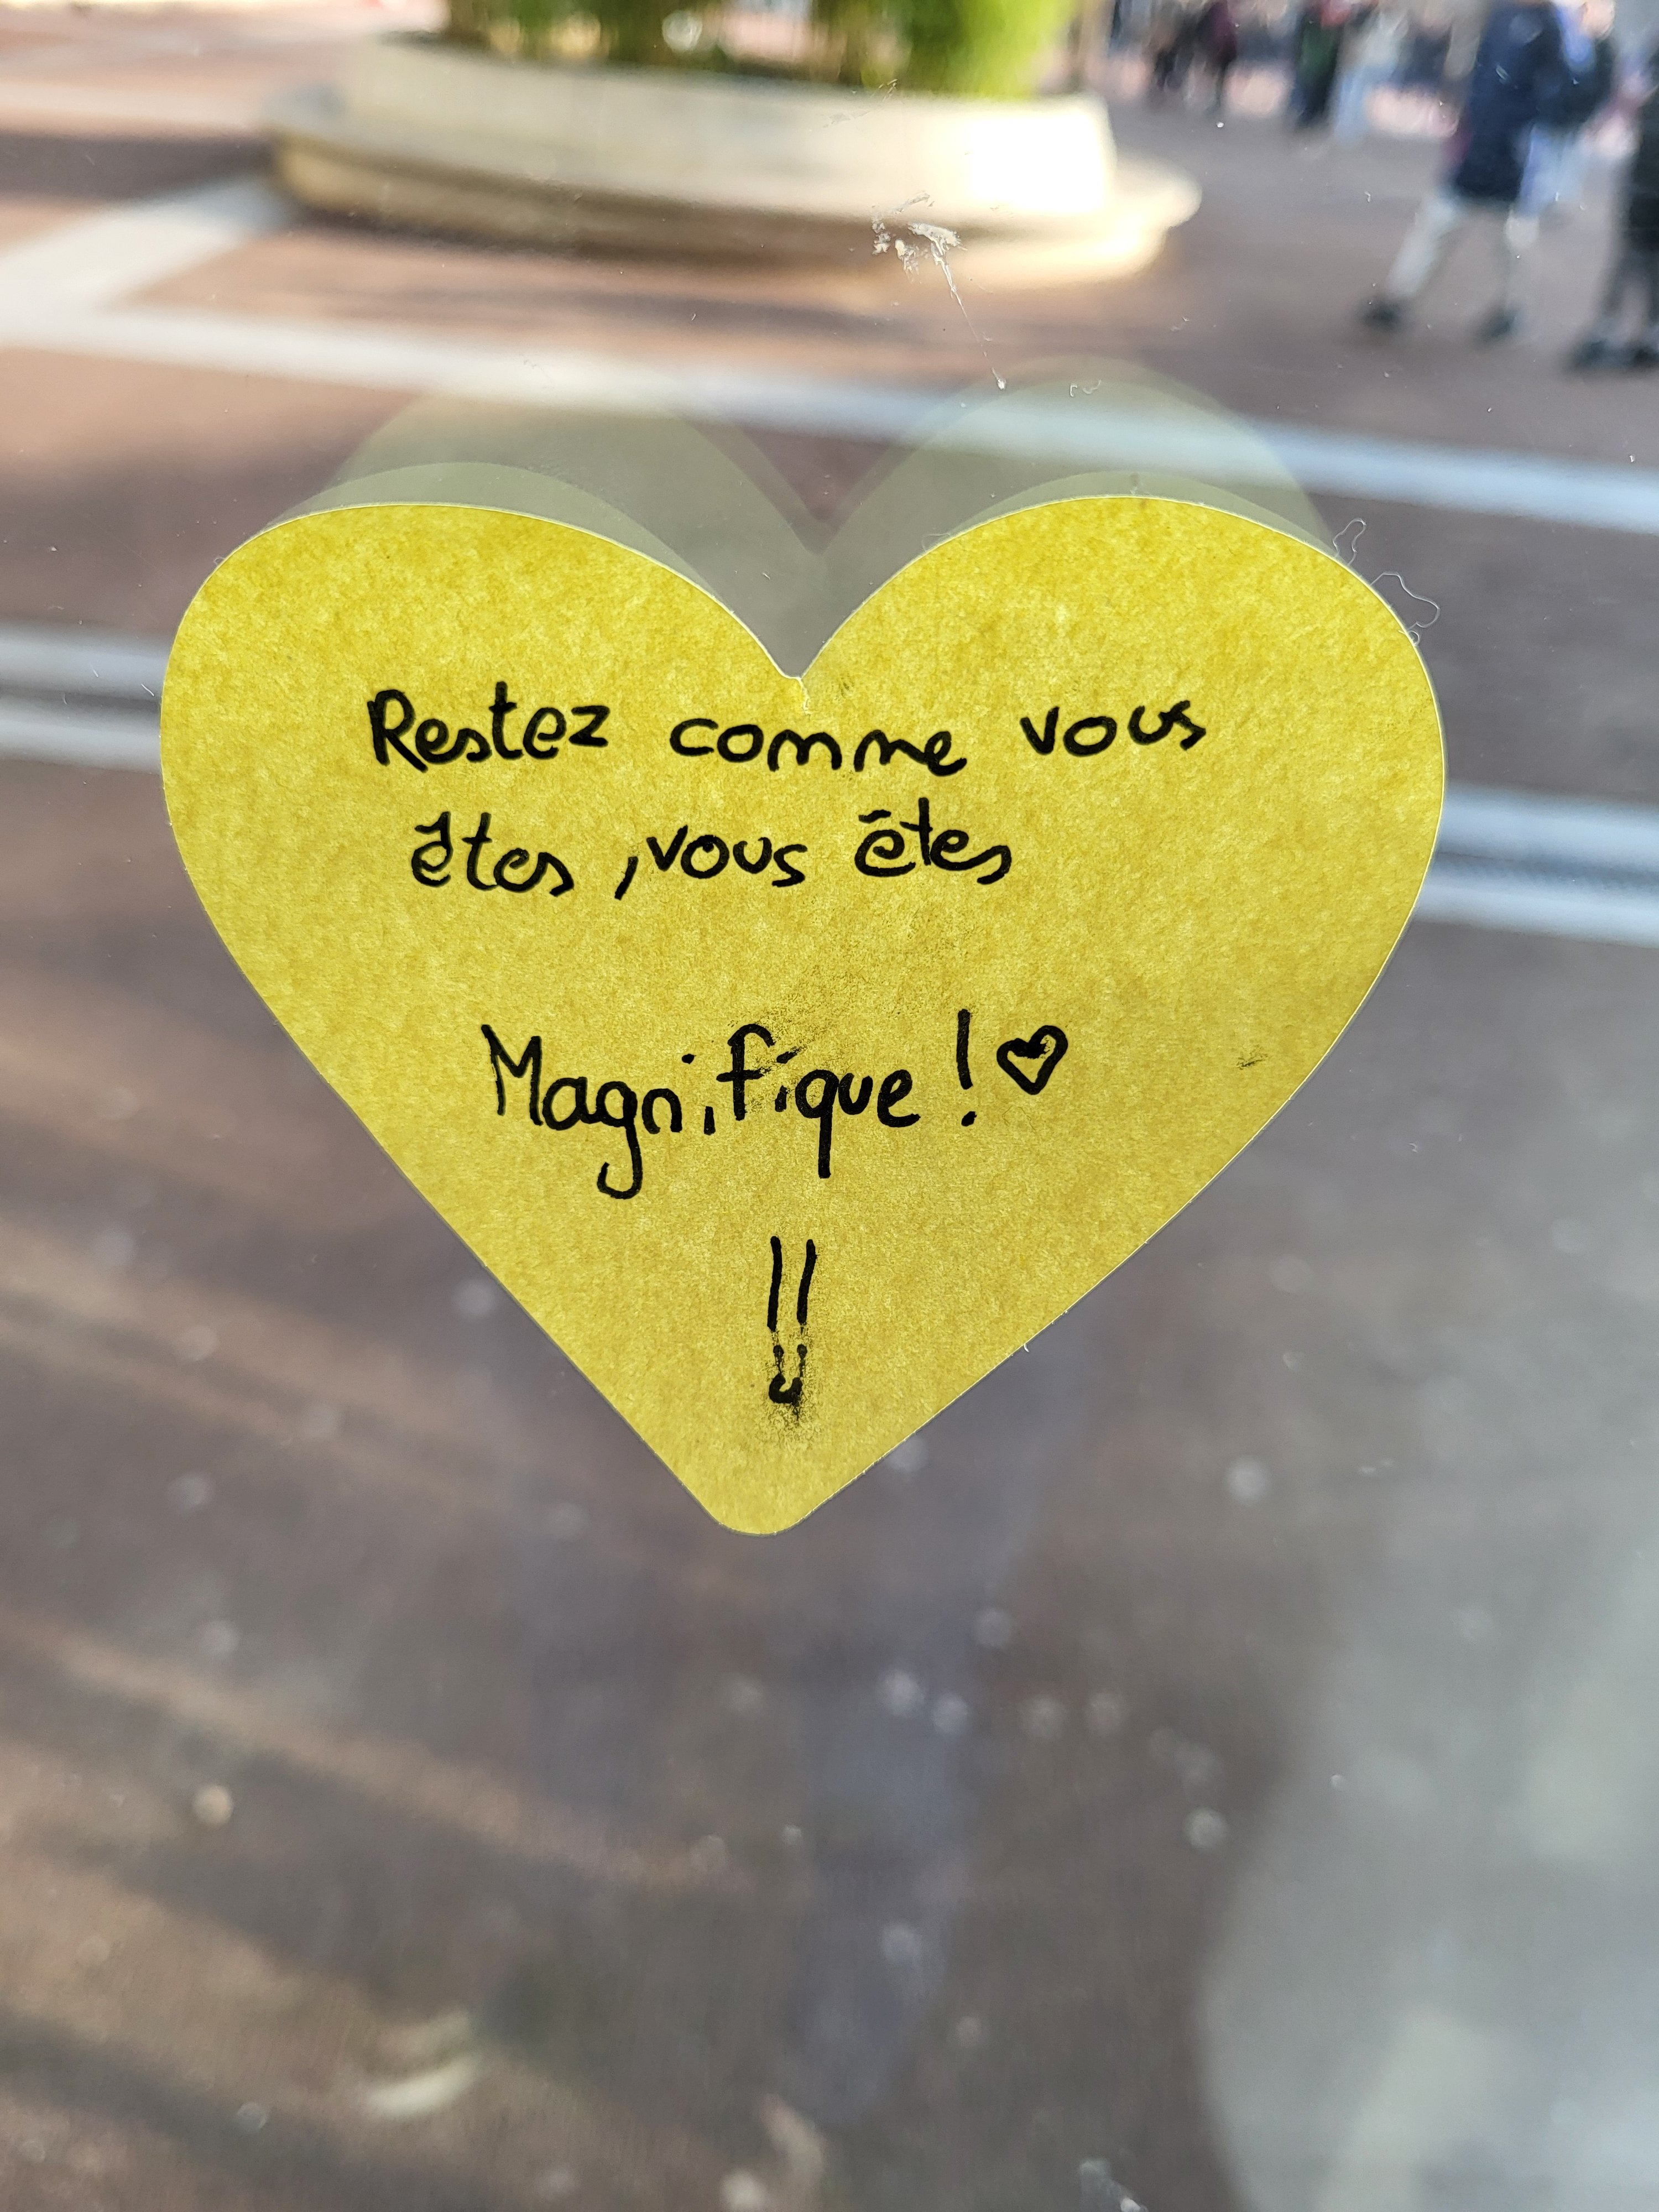 Restez comme vous
êtes, vous êtes
Magnifique ! ♡
!!